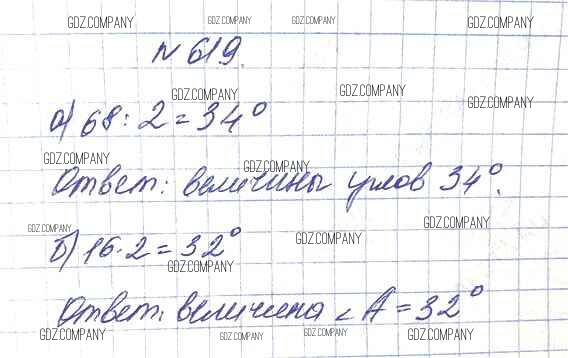 GDZ.COMPANY GDZ.COMPANY GDZ.COMPANY GDZ.COMPANY
№ 619.
GDZ.COMPANY GDZ.COMPANY GDZ.COMPANY
а) 68 : 2 = 34°
GDZ.COMPANY GDZ.COMPANY
Ответ: величины углов 34°.
GDZ.COMPANY GDZ.COMPANY GDZ.COMPANY
б) 16 · 2 = 32°
GDZ.COMPANY
Ответ: величина ∠ A = 32°
GDZ.COMPANY GDZ.COMPANY GDZ.COMPANY GDZ.COMPANY